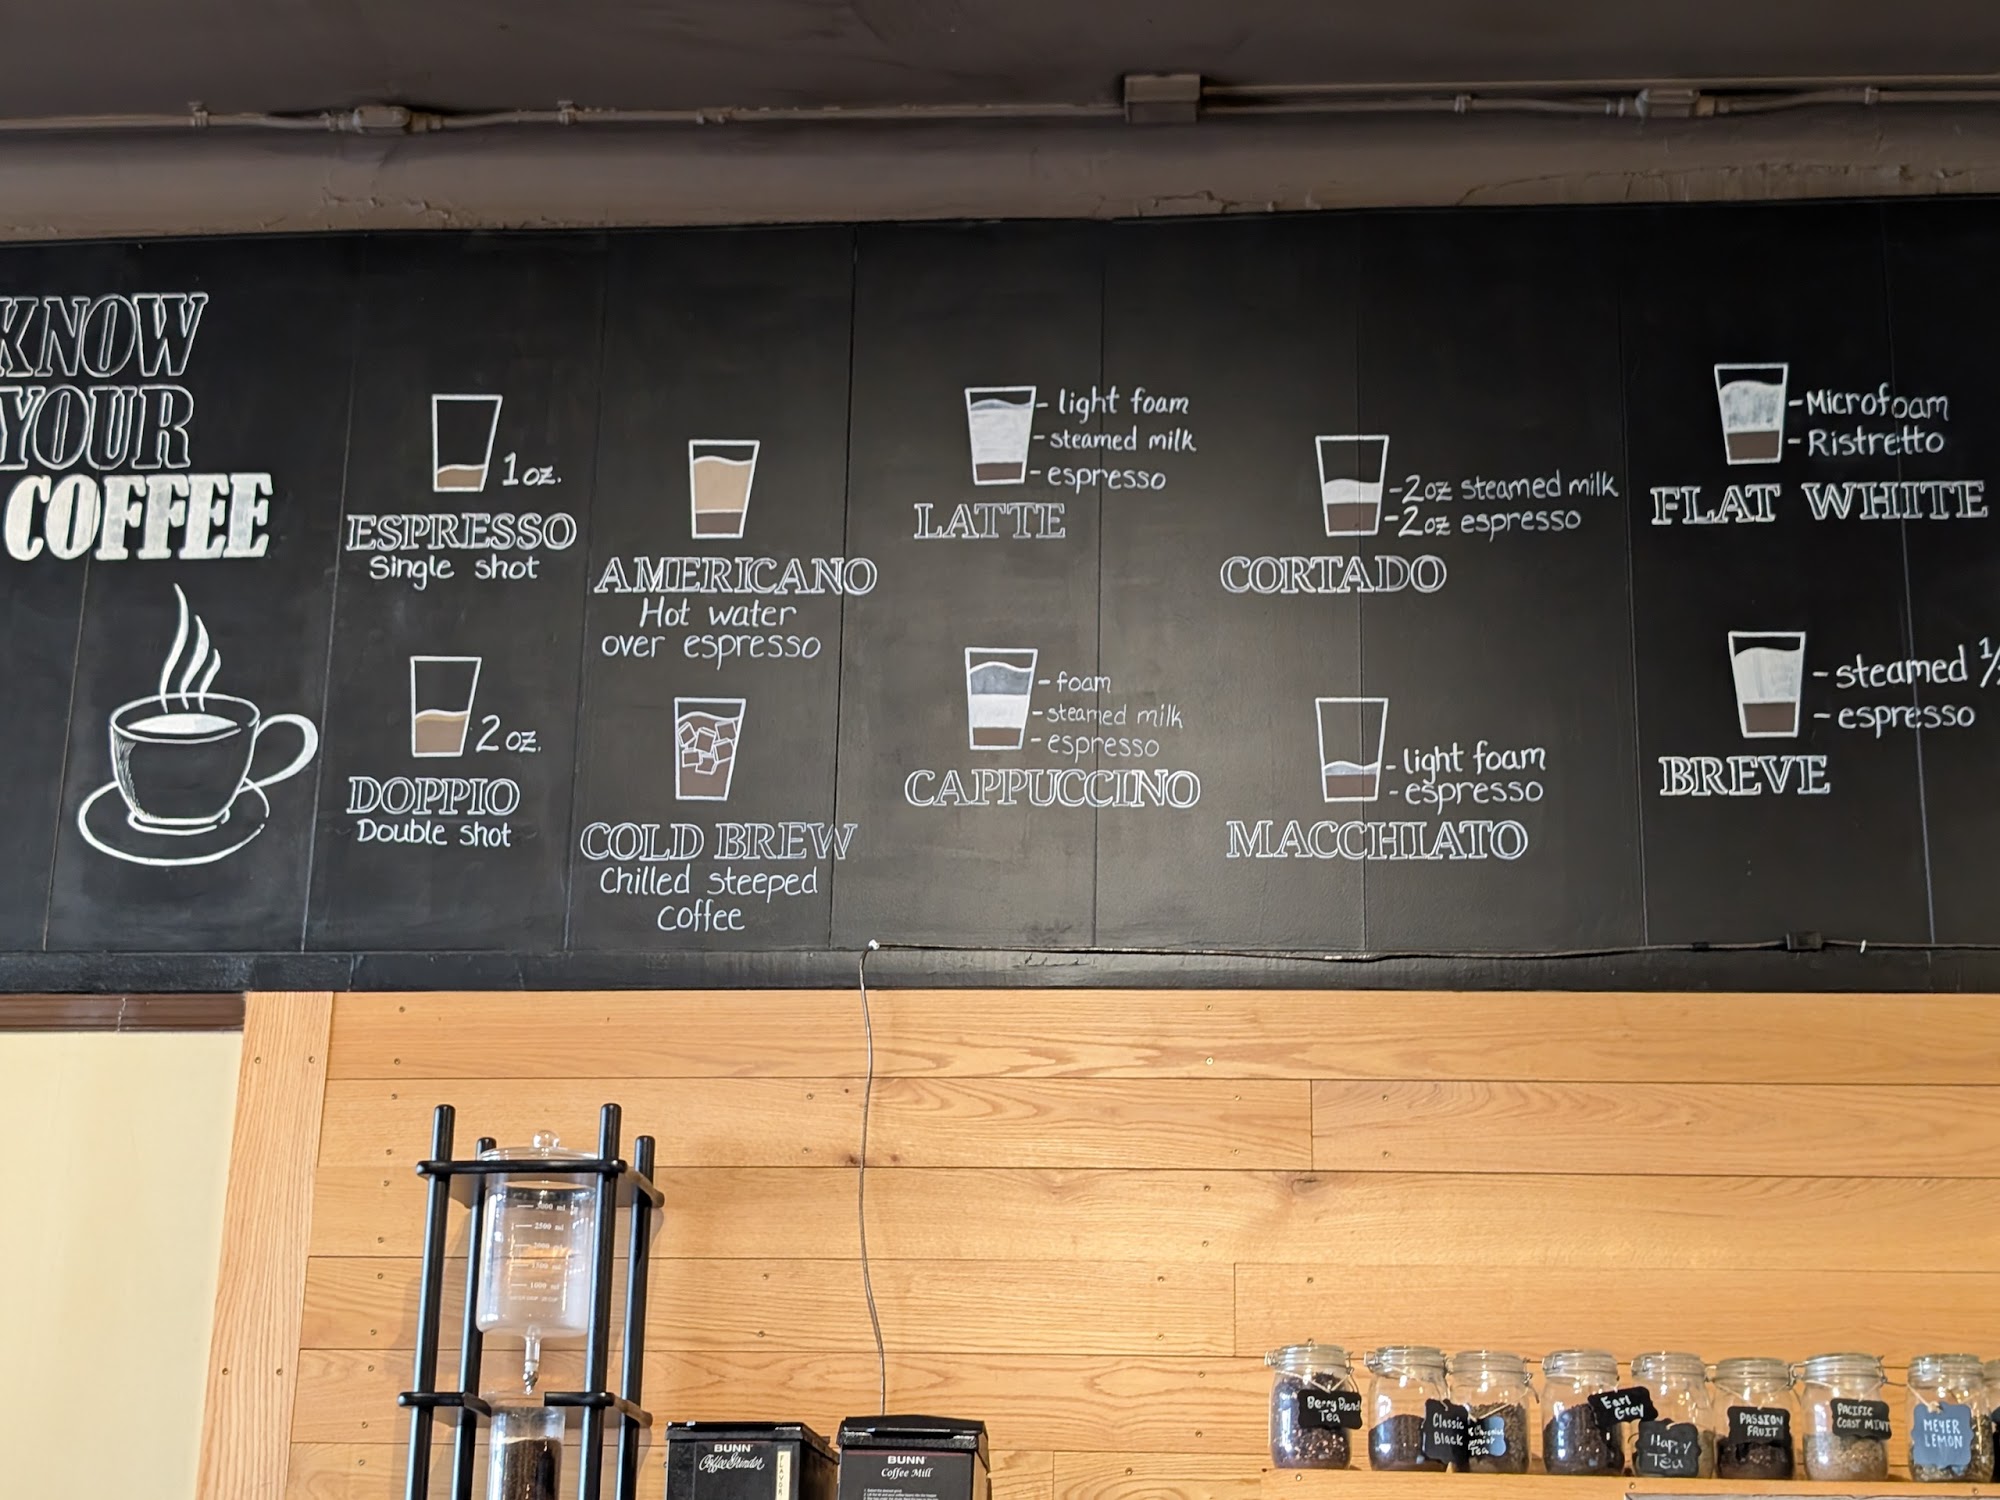 KNOW
YOUR
COFFEE
1 oz.
ESPRESSO
Single shot
2 oz.
DOPPIO
Double shot
AMERICANO
Hot water
over espresso
COLD BREW
Chilled steeped
coffee
- light foam
- steamed milk
- espresso
LATTE
- foam
- steamed milk
- espresso
CAPPUCCINO
- 2oz steamed milk
- 2oz espresso
CORTADO
- light foam
- espresso
MACCHIATO
- Microfoam
- Ristretto
FLAT WHITE
- steamed
- espresso
BREVE
3000 ml
2500 ml
2000 ml
1500 ml
1000 ml
BUNN
Coffee Grinder
FLAVOR
BUNN
Coffee Mill
Berry Blend
Tea
Classic
Black
Tea
Earl
Grey
Happy
Tea
PASSION
FRUIT
PACIFIC
COAST MINT
MEYER
LEMON